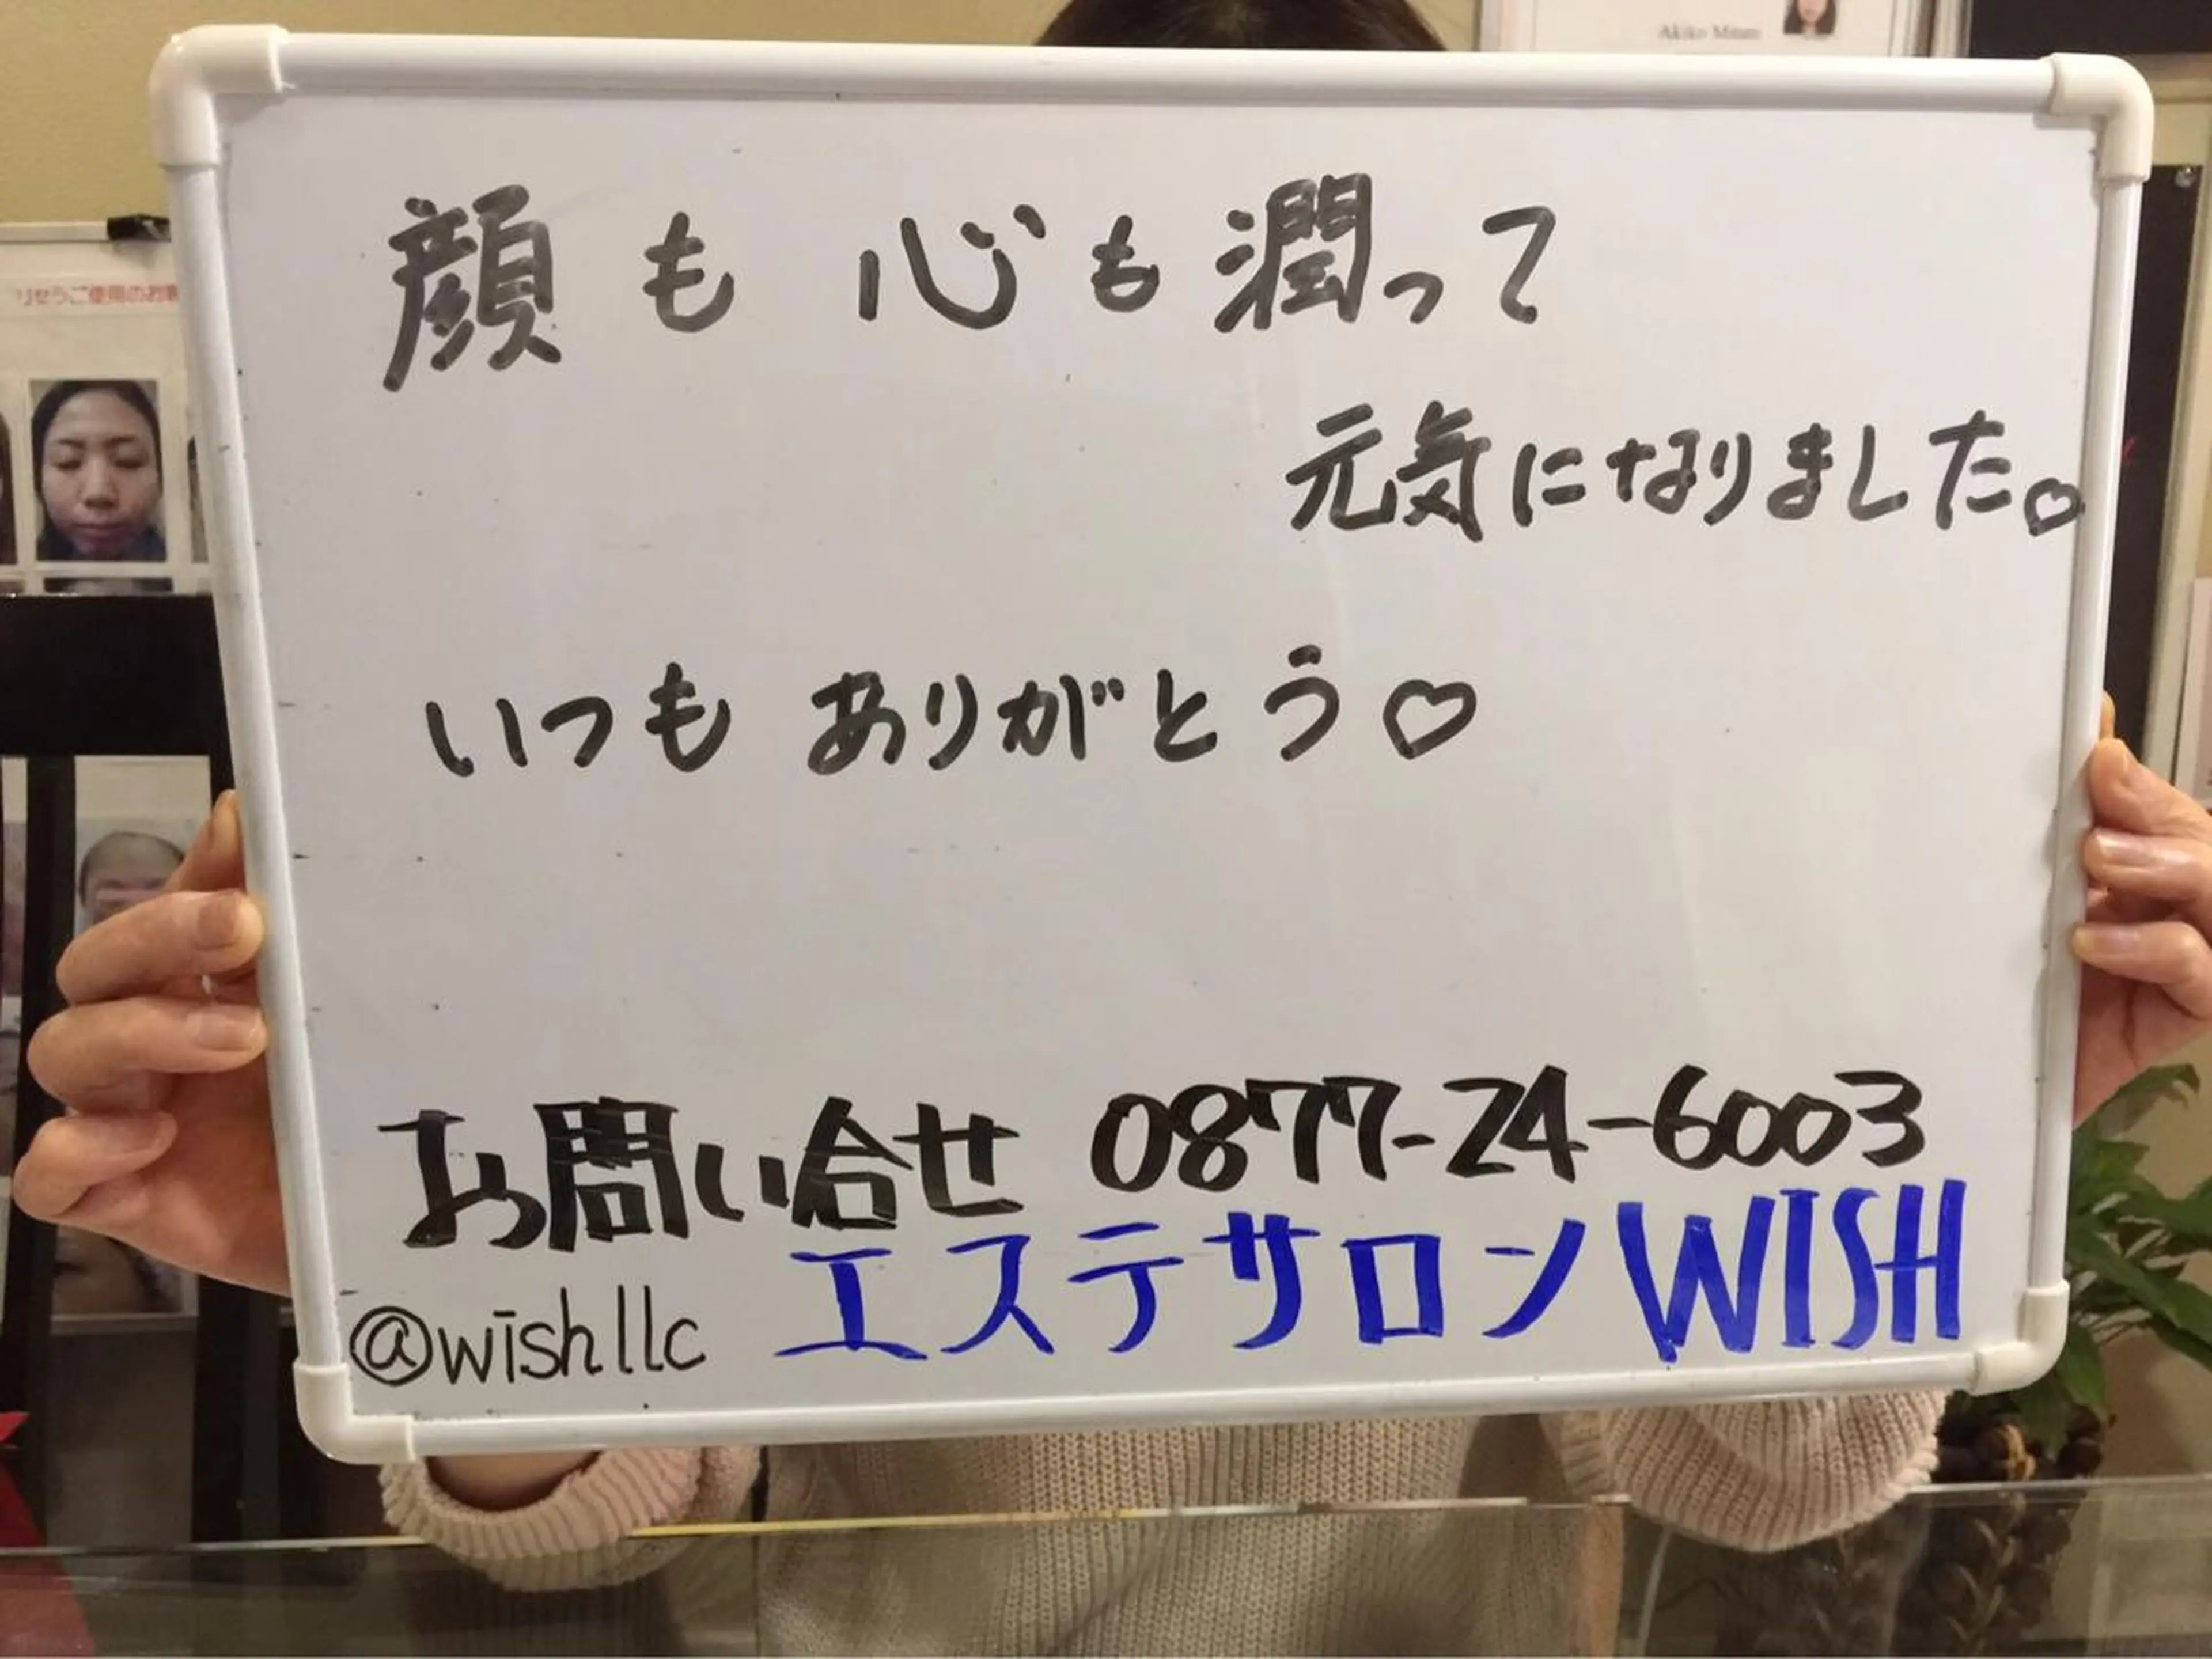 顔も 心も潤って
元気になりました♡
いつも ありがとう♡
お問い合せ 0877-24-6003
@wishllc エステサロン WISH
リセラご使用のお客
Akiko